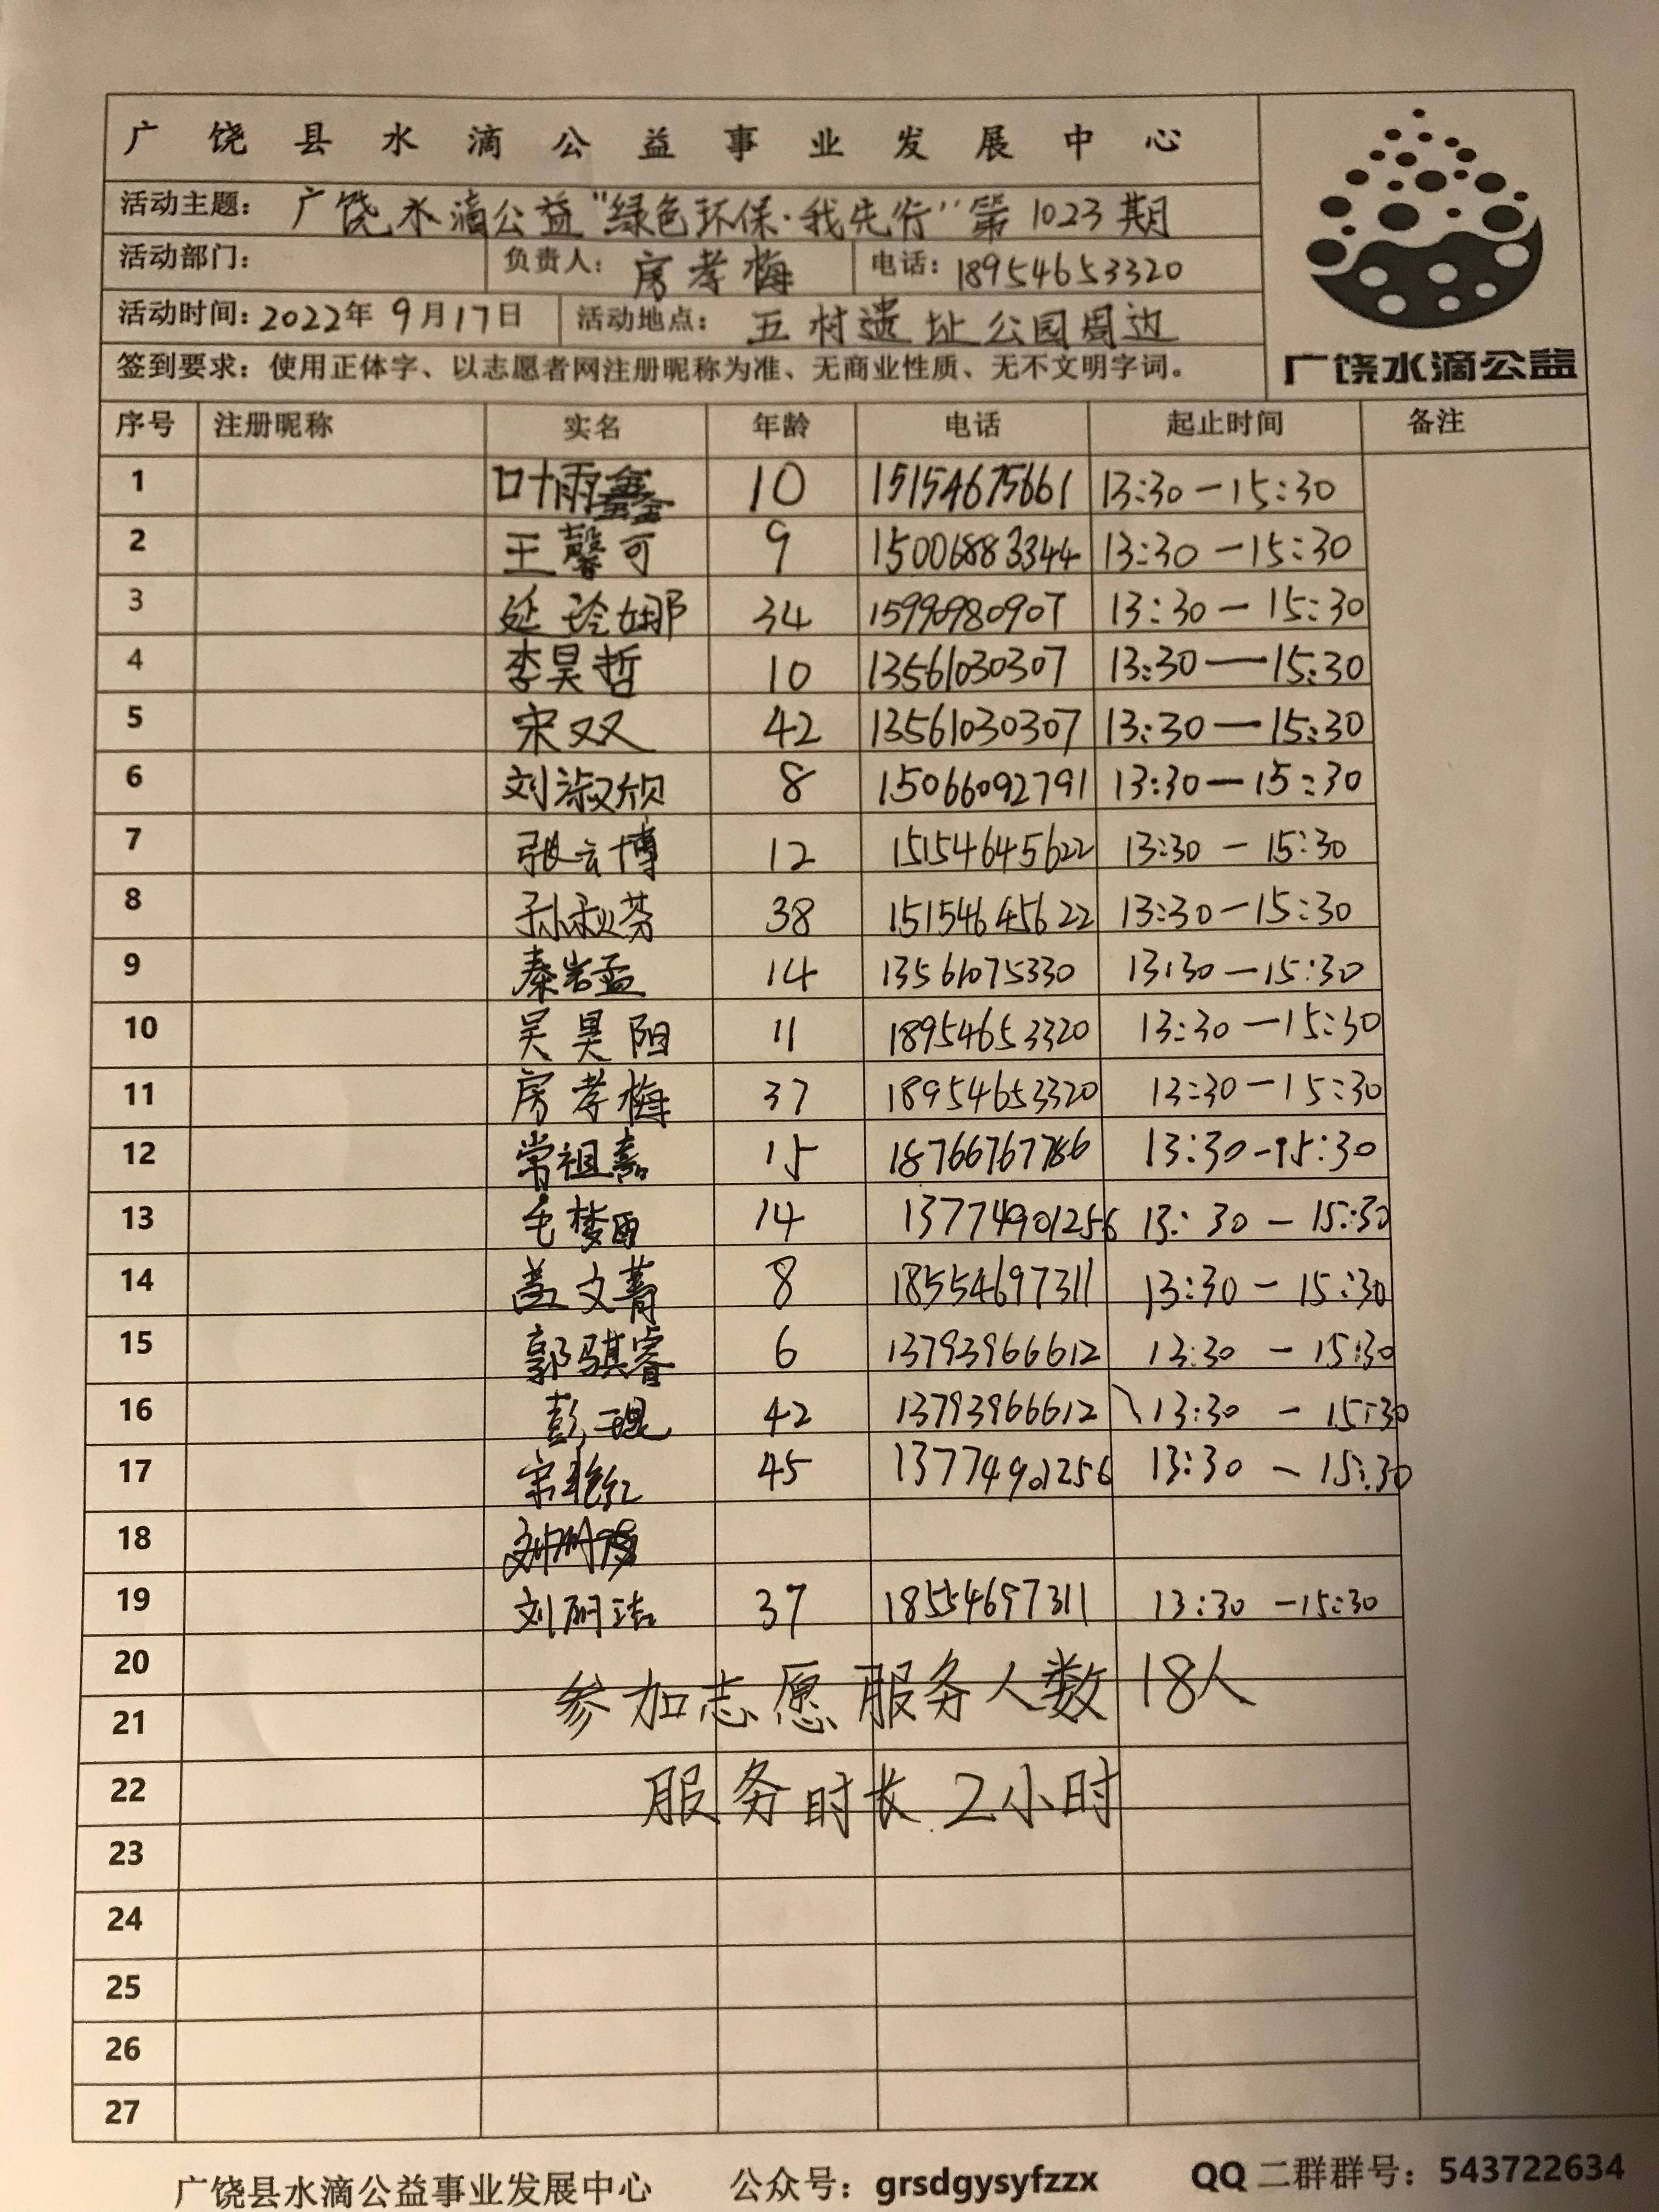 广饶县水滴公益事业发展中心
活动主题：广饶水滴公益“绿色环保·我先行”第1023期
活动部门： 负责人：房孝梅 电话：18954653320
活动时间：2022年9月17日 活动地点：五村遗址公园周边
签到要求：使用正体字、以志愿者网注册昵称为准、无商业性质、无不文明字词。
广饶水滴公益
序号 注册昵称 实名 年龄 电话 起止时间 备注
1 叶雨鑫 10 15154675661 13:30-15:30
2 王馨可 9 15006883344 13:30-15:30
3 延玲娜 34 15990980907 13:30-15:30
4 李昊哲 10 13561030307 13:30-15:30
5 宋双 42 13561030307 13:30-15:30
6 刘淑欣 8 15066092791 13:30-15:30
7 张云博 12 15154645622 13:30-15:30
8 孙秋芬 38 15154645622 13:30-15:30
9 秦岩孟 14 13561075330 13:30-15:30
10 吴昊阳 11 18954653320 13:30-15:30
11 房孝梅 37 18954653320 13:30-15:30
12 常祖嘉 15 18766767786 13:30-15:30
13 毛梦雨 14 13774901256 13:30-15:30
14 盖文菁 8 18554697311 13:30-15:30
15 郭骐睿 6 13793966612 13:30-15:30
16 彭琨 42 13793966612 13:30-15:30
17 宋艳红 45 13774901256 13:30-15:30
18
19 刘丽洁 37 18554697311 13:30-15:30
20
参加志愿服务人数18人
21
22 服务时长2小时
23
24
25
26
27
广饶县水滴公益事业发展中心 公众号：grsdgysyfzzx QQ二群群号：543722634